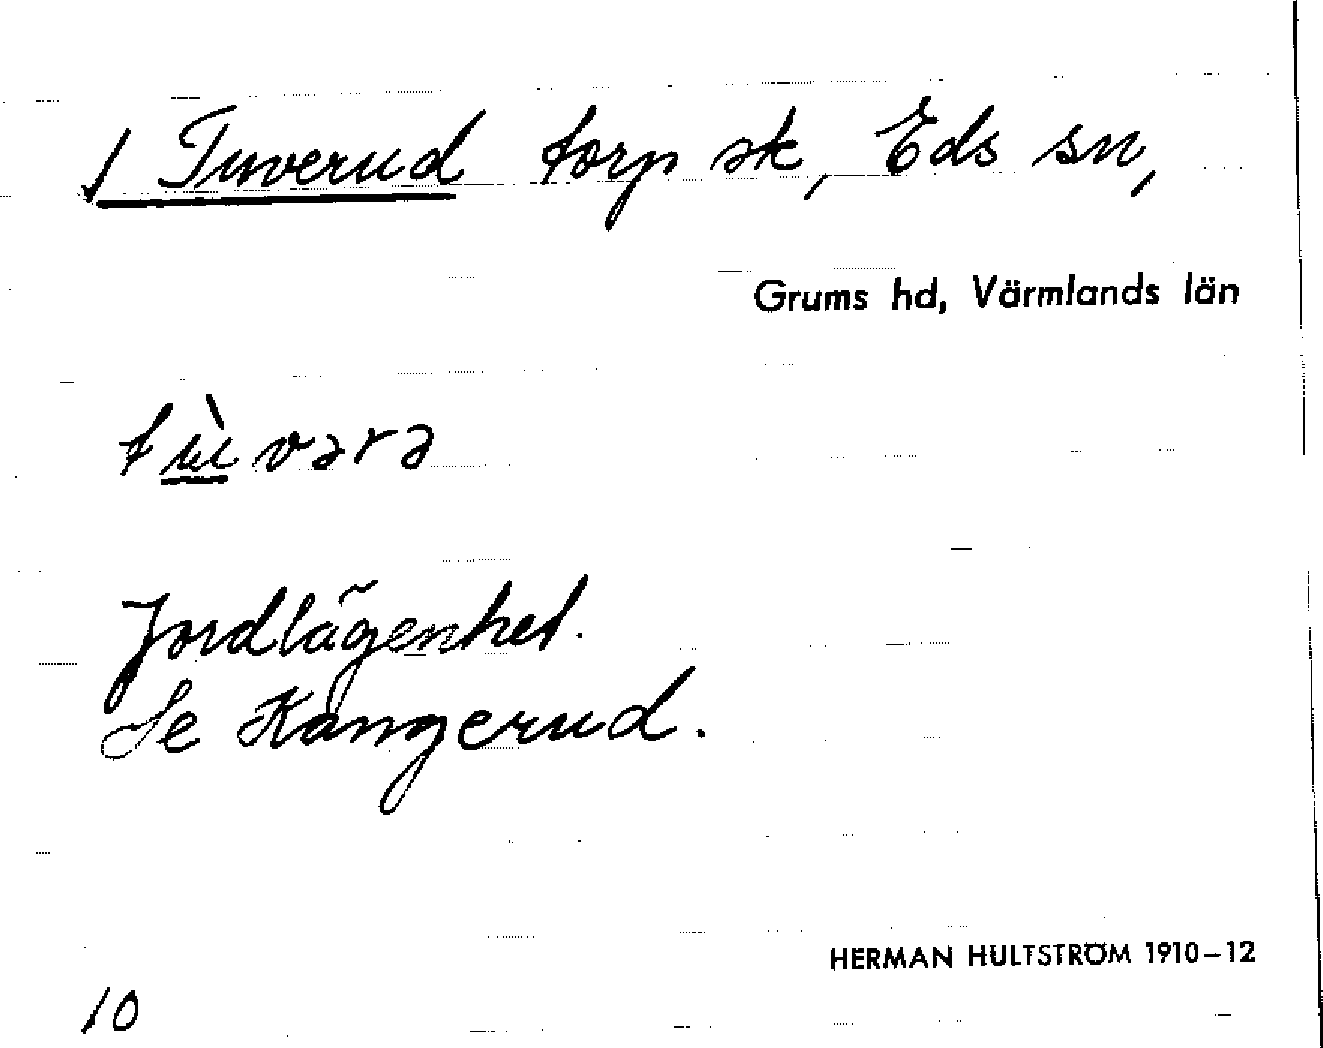 √ Tuverud torp sk, Eds sn,
Grums hd, Värmlands län
tùvərə
Jordlägenhet.
Se Kangerud.
HERMAN HULTSTRÖM 1910–12
10